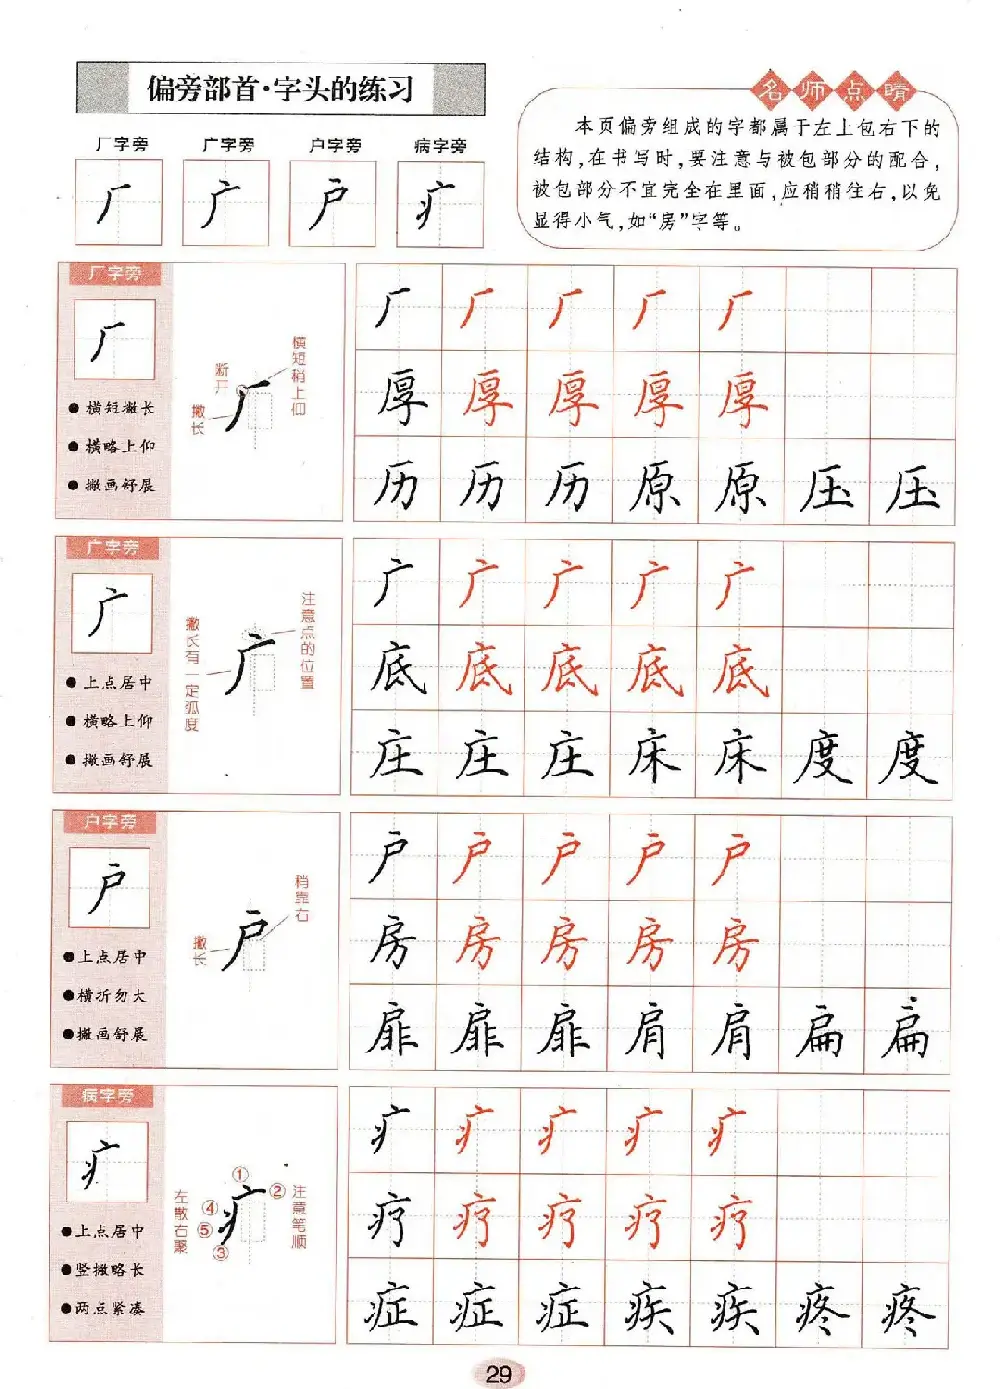 偏旁部首·字头的练习
名师点睛
本页偏旁组成的字都属于左上包右下的
结构,在书写时,要注意与被包部分的配合,
被包部分不宜完全在里面,应稍稍往右,以免
显得小气,如“房”字等。
厂字旁 广字旁 户字旁 病字旁
厂 广 户 疒
厂字旁
厂
●横短撇长
●横略上仰
●撇画舒展
断开
撇长
横短稍上仰
厂
厂 厂 厂 厂 厂
厚 厚 厚 厚 厚
历 历 历 原 原 压 压
广字旁
广
●上点居中
●横略上仰
●撇画舒展
撇长有一定弧度
注意点的位置
广
广 广 广 广 广
底 底 底 底 底
庄 庄 庄 床 床 度 度
户字旁
户
●上点居中
●横折勿大
●撇画舒展
撇长
稍靠右
户
户 户 户 户 户
房 房 房 房 房
扉 扉 扉 肩 肩 扁 扁
病字旁
疒
●上点居中
●竖撇略长
●两点紧凑
左散右聚
① ② ④ ⑤ ③
注意笔顺
疒
疒 疒 疒 疒 疒
疗 疗 疗 疗 疗
症 症 症 疾 疾 疼 疼
29